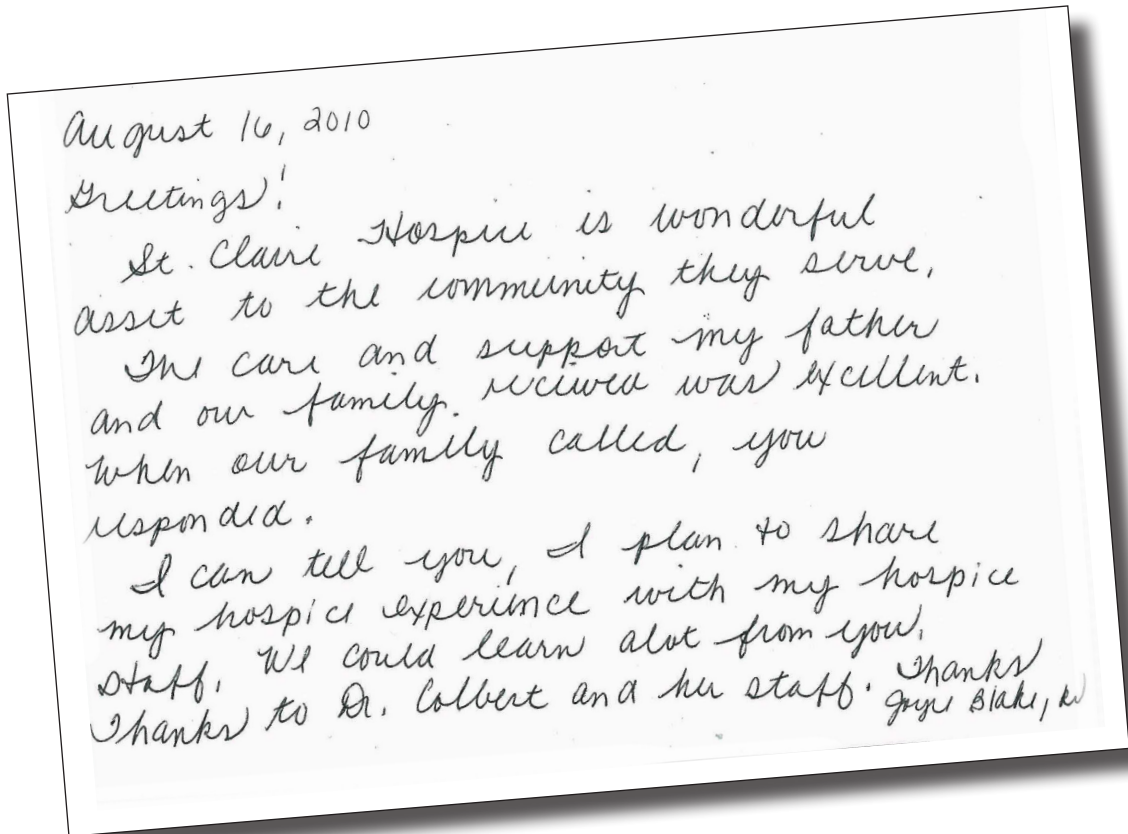 August 16, 2010
Greetings!
St. Claire Hospice is wonderful
asset to the community they serve.
The care and support my father
and our family. received was excellent.
When our family called, you
responded.
I can tell you, I plan to share
my hospice experience with my hospice
staff. We could learn alot from you.
Thanks to Dr. Colbert and her staff. Thanks
Joyce Blake, RN